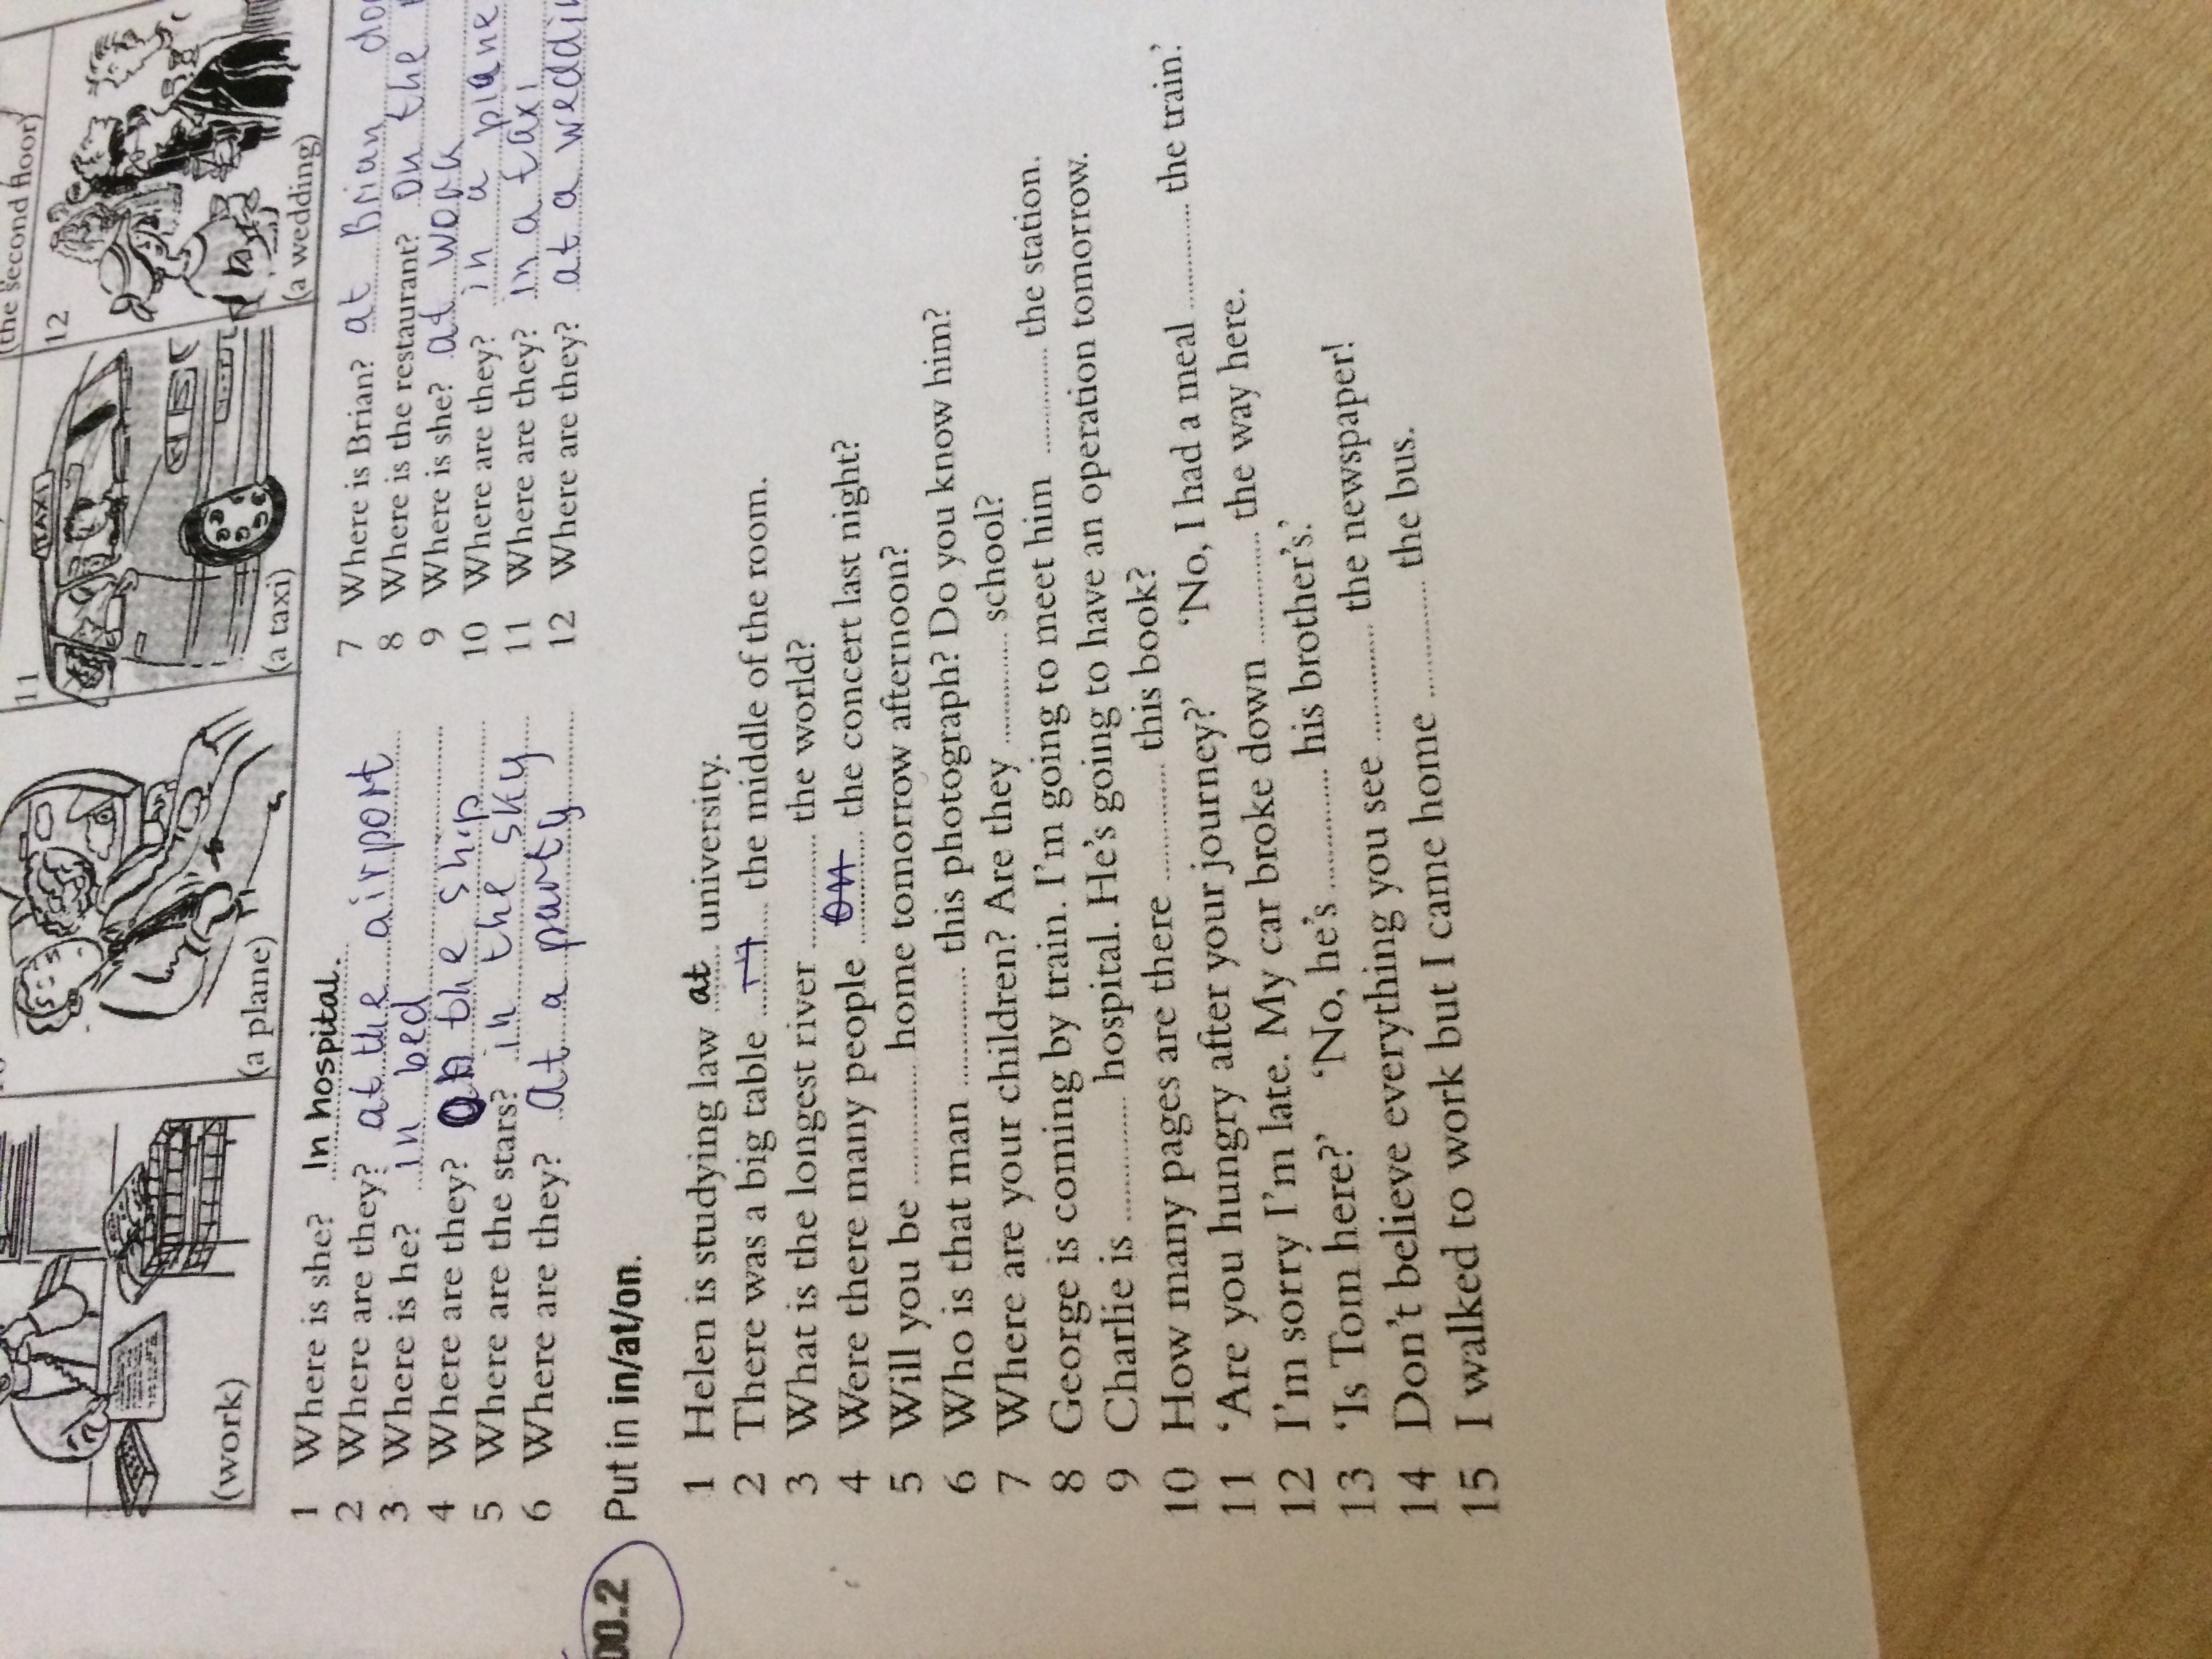 (the second floor)
11
12
(work)
(a plane)
(a taxi)
(a wedding)
TAXI
1 Where is she? In hospital.
2 Where are they? at the airport
3 Where is he? in bed
4 Where are they? On the ship
5 Where are the stars? in the sky
6 Where are they? at a party
7 Where is Brian? at Brian
8 Where is the restaurant? on the
9 Where is she? at work
10 Where are they? in a plane
11 Where are they? in a taxi
12 Where are they? at a
00.2 Put in in/at/on.
1 Helen is studying law at university.
2 There was a big table ........ the middle of the room.
3 What is the longest river ........ the world?
4 Were there many people on the concert last night?
5 Will you be ........ home tomorrow afternoon?
6 Who is that man ........ this photograph? Do you know him?
7 Where are your children? Are they ........ school?
8 George is coming by train. I'm going to meet him ........ the station.
9 Charlie is ........ hospital. He's going to have an operation tomorrow.
10 How many pages are there ........ this book?
11 'Are you hungry after your journey?' 'No, I had a meal ........ the train.'
12 I'm sorry I'm late. My car broke down ........ the way here.
13 'Is Tom here?' 'No, he's ........ his brother's.'
14 Don't believe everything you see ........ the newspaper!
15 I walked to work but I came home ........ the bus.